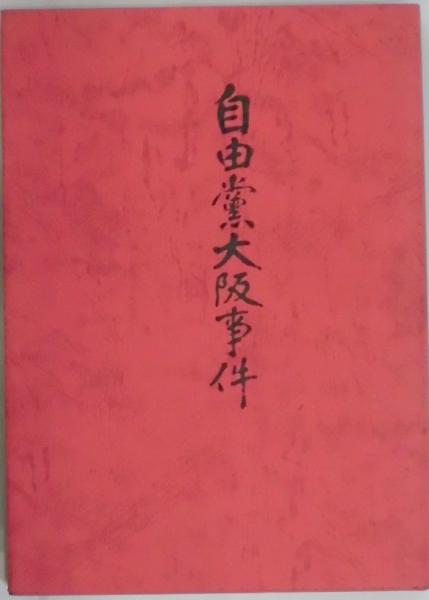 自由黨大阪事件